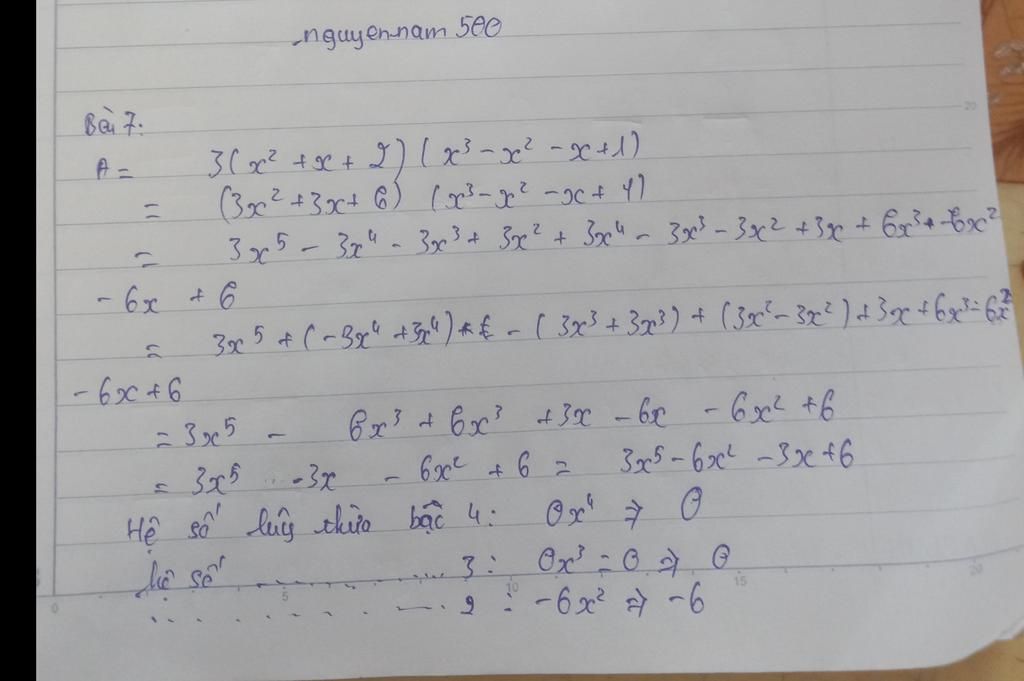 nguyennam 500
Bài 7:
A = 3(x² + x + 2)(x³ - x² - x + 1)
= (3x² + 3x + 6) (x³ - x² - x + 1)
= 3x⁵ - 3x⁴ - 3x³ + 3x² + 3x⁴ - 3x³ - 3x² + 3x + 6x³ + -6x²
- 6x + 6
= 3x⁵ + (-3x⁴ + 3x⁴) - (3x³ + 3x³) + (3x² - 3x²) + 3x + 6x³ - 6x²
- 6x + 6
= 3x⁵ - 6x³ + 6x³ + 3x - 6x - 6x² + 6
= 3x⁵ - 3x - 6x² + 6 = 3x⁵ - 6x² - 3x + 6
Hệ số luỹ thừa bậc 4: 0x⁴ ⇒ 0
hệ số ................ 3: 0x³ = 0 ⇒ 0
................ 2 : -6x² ⇒ -6
20
0 5 10 15 20